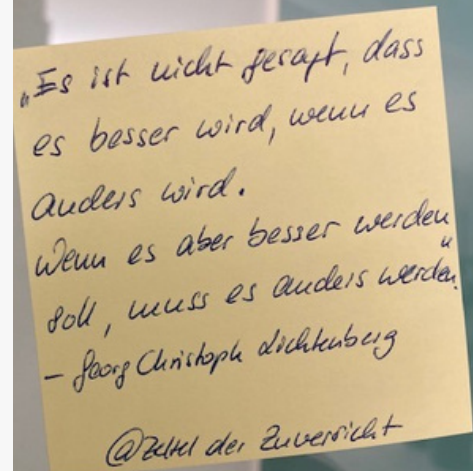 „Es ist nicht gesagt, dass
es besser wird, wenn es
anders wird.
Wenn es aber besser werden
soll, muss es anders werden."
- Georg Christoph Lichtenberg
@Zettel der Zuversicht